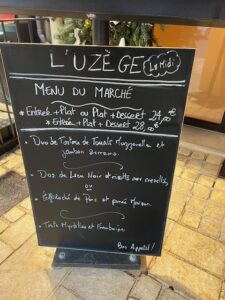 L'UZÈGE
Le Midi
MENU DU MARCHÉ
* Entrée + Plat ou Plat + Dessert 24,00€
* Entrée + Plat + Dessert 28,00€
• Duo de Tomates Mozzarella et
jambon serrano
• Dos de Lieu Noir et risotto aux crevettes
ou
• Effiloché de Porc et purée Maison
• Tarte Myrtilles et Framboises
Bon Appétit !